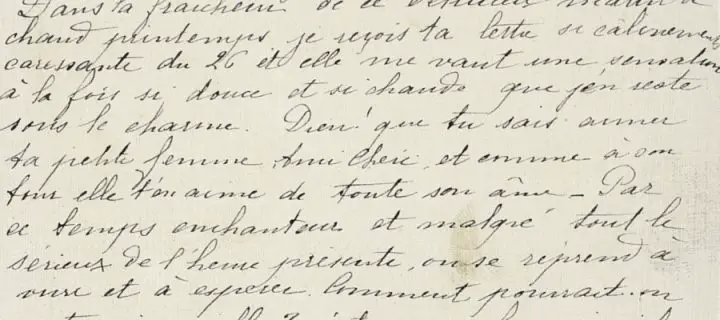 Dans la fraîcheur de ce délicieux matin d
chaud printemps je reçois ta lettre si câlinement
caressante du 26 et elle me vaut une sensation
à la fois si douce et si chaude que j'en reste
sous le charme. Dieu! que tu sais aimer
ta petite femme, Ami Chéri, et comme à son
tour elle t'en aime de toute son âme - Par
ce temps enchanteur et malgré tout le
sérieux de l'heure présente, on se reprend à
vivre et à espérer. Comment pourrait-on